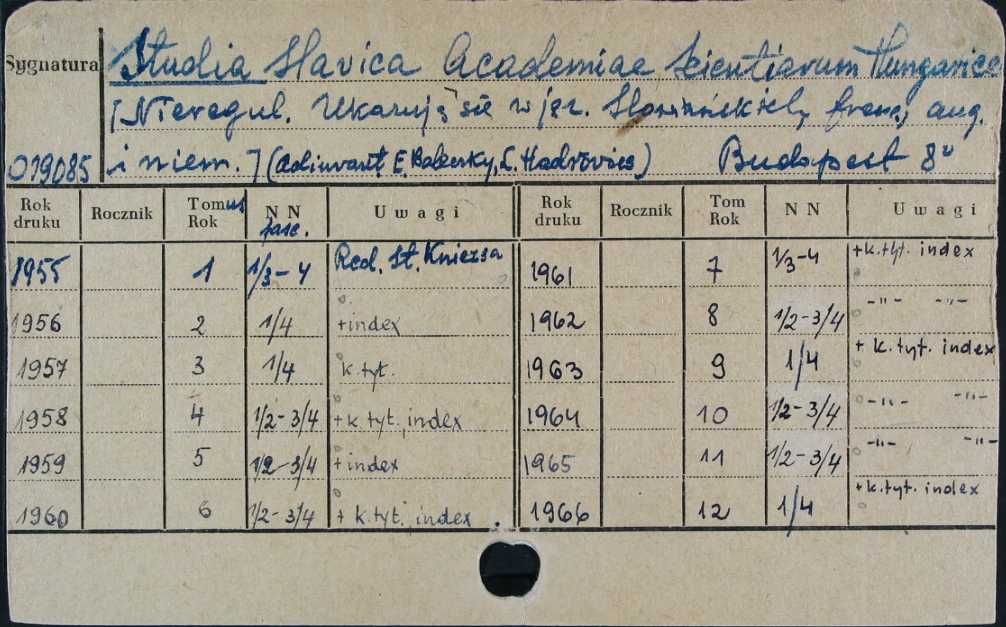 Sygnatura
Studia Slavica Academiae Scientiarum Hungaricae
[Nieregul. Ukazują się w jęz. słowiańskich, franc, ang.
019085 i niem.] (adiuvant E. Baleczky, L. Hadrovics) Budapest 8°
Rok druku Rocznik Tomus Rok NN fasc. Uwagi Rok druku Rocznik Tom Rok NN Uwagi
1955 1 1/3-4 Red. St. Kniezsa 1961 7 1/3-4 +k.tyt. index
1956 2 1/4 +index 1962 8 1/2-3/4 -"- -"-
1957 3 1/4 k.tyt. 1963 9 1/4 + k.tyt. index
1958 4 1/2-3/4 +k.tyt., index 1964 10 1/2-3/4 -"- -"-
1959 5 1/2-3/4 +index 1965 11 1/2-3/4 -"- -"-
1960 6 1/2-3/4 + k.tyt. index 1966 12 1/4 +k.tyt. index